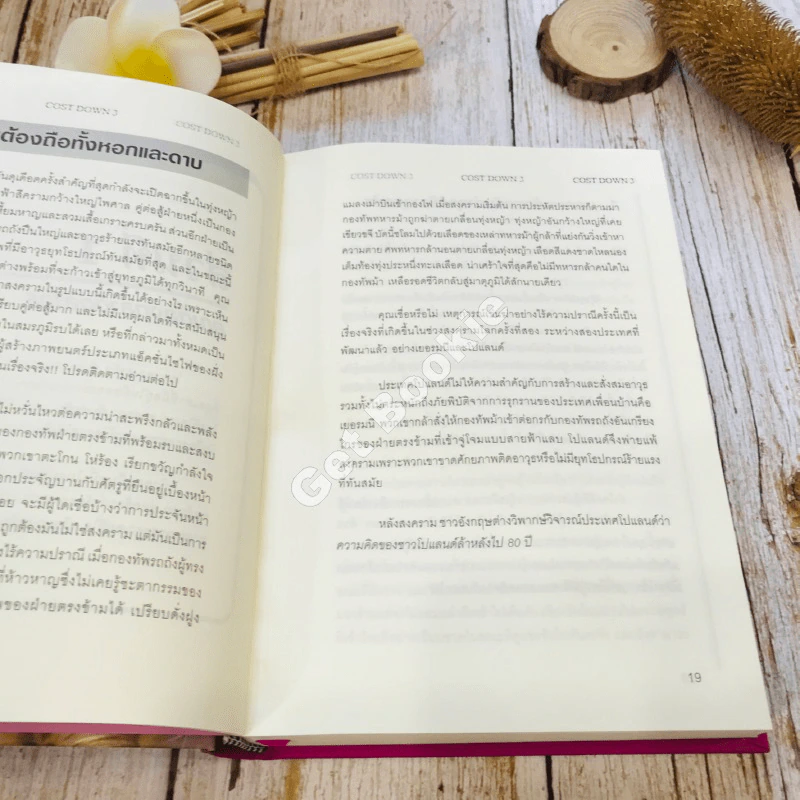 COST DOWN 3
COST DOWN 3
ต้องถือทั้งหอกและดาบ
นดุเดือดครั้งสำคัญที่สุดกำลังจะเปิดฉากขึ้นในทุ่งหญ้า
ฟ้าสีครามกว้างใหญ่ไพศาล คู่ต่อสู้ฝ่ายหนึ่งเป็นกอง
หี้ยมหาญและสวมเสื้อเกราะครบครัน ส่วนอีกฝ่ายเป็น
รถถังปืนใหญ่และอาวุธร้ายแรงทันสมัยอีกหลายชนิด
ที่มีอาวุธยุทโธปกรณ์ทันสมัยที่สุด และในขณะนี้
ต่างพร้อมที่จะก้าวเข้าสู่ยุทธภูมิได้ทุกวินาที คุณ
าสงครามในรูปแบบนี้เกิดขึ้นได้อย่างไร เพราะเห็น
รียบคู่ต่อสู้มาก และไม่มีเหตุผลใดที่จะสนับสนุน
ในสมรภูมิรบได้เลย หรือที่กล่าวมาทั้งหมดเป็น
ผู้สร้างภาพยนตร์ประเภทแอ็คชั่นไซไฟของฝั่ง
นเรื่องจริง!! โปรดติดตามอ่านต่อไป
ไม่หวั่นไหวต่อความน่าสะพรึงกลัวและพลัง
ของกองทัพฝ่ายตรงข้ามที่พร้อมรบและสงบ
พวกเขาตะโกน โห่ร้อง เรียกขวัญกำลังใจ
อกประจัญบานกับศัตรูที่ยืนอยู่เบื้องหน้า
อย จะมีผู้ใดเชื่อบ้างว่าการประจันหน้า
ถูกต้องมันไม่ใช่สงคราม แต่มันเป็นการ
งไร้ความปราณี เมื่อกองทัพรถถังผู้ทรง
ที่ห้าวหาญซึ่งไม่เคยรู้ชะตากรรมของ
ของฝ่ายตรงข้ามได้ เปรียบดั่งฝูง
COST DOWN 3
COST DOWN 3
COST DOWN 3
แมลงเม่าบินเข้ากองไฟ เมื่อสงครามเริ่มต้น การประหัตประหารก็ตามมา
กองทัพทหารม้าถูกฆ่าตายเกลื่อนทุ่งหญ้า ทุ่งหญ้าอันกว้างใหญ่ที่เคย
เขียวขจี บัดนี้ชโลมไปด้วยเลือดของเหล่าทหารม้าผู้กล้าที่แย่งกันวิ่งเข้าหา
ความตาย ศพทหารกล้านอนตายเกลื่อนทุ่งหญ้า เลือดสีแดงชาดไหลนอง
เต็มท้องทุ่งประหนึ่งทะเลเลือด น่าเศร้าใจที่สุดคือไม่มีทหารกล้าคนใดใน
กองทัพม้า เหลือรอดชีวิตกลับสู่มาตุภูมิได้สักนายเดียว
คุณเชื่อหรือไม่ เหตุการณ์เข่นฆ่าอย่างไร้ความปราณีครั้งนี้เป็น
เรื่องจริงที่เกิดขึ้นในช่วงสงครามโลกครั้งที่สอง ระหว่างสองประเทศที่
พัฒนาแล้ว อย่างเยอรมนีและโปแลนด์
ประเทศโปแลนด์ไม่ให้ความสำคัญกับการสร้างและสั่งสมอาวุธ
รวมทั้งไม่ตระหนักถึงภัยพิบัติจากการรุกรานของประเทศเพื่อนบ้านคือ
เยอรมนี พวกเขากล้าสั่งให้กองทัพม้าเข้าต่อกรกับกองทัพรถถังอันเกรียง
ไกรของฝ่ายตรงข้ามที่เข้าจู่โจมแบบสายฟ้าแลบ โปแลนด์จึงพ่ายแพ้
สงครามเพราะพวกเขาขาดศักยภาพติดอาวุธหรือไม่มียุทโธปกรณ์ร้ายแรง
ที่ทันสมัย
หลังสงคราม ชาวอังกฤษต่างวิพากษ์วิจารณ์ประเทศโปแลนด์ว่า
ความคิดของชาวโปแลนด์ล้าหลังไป 80 ปี
19
Get Bookie